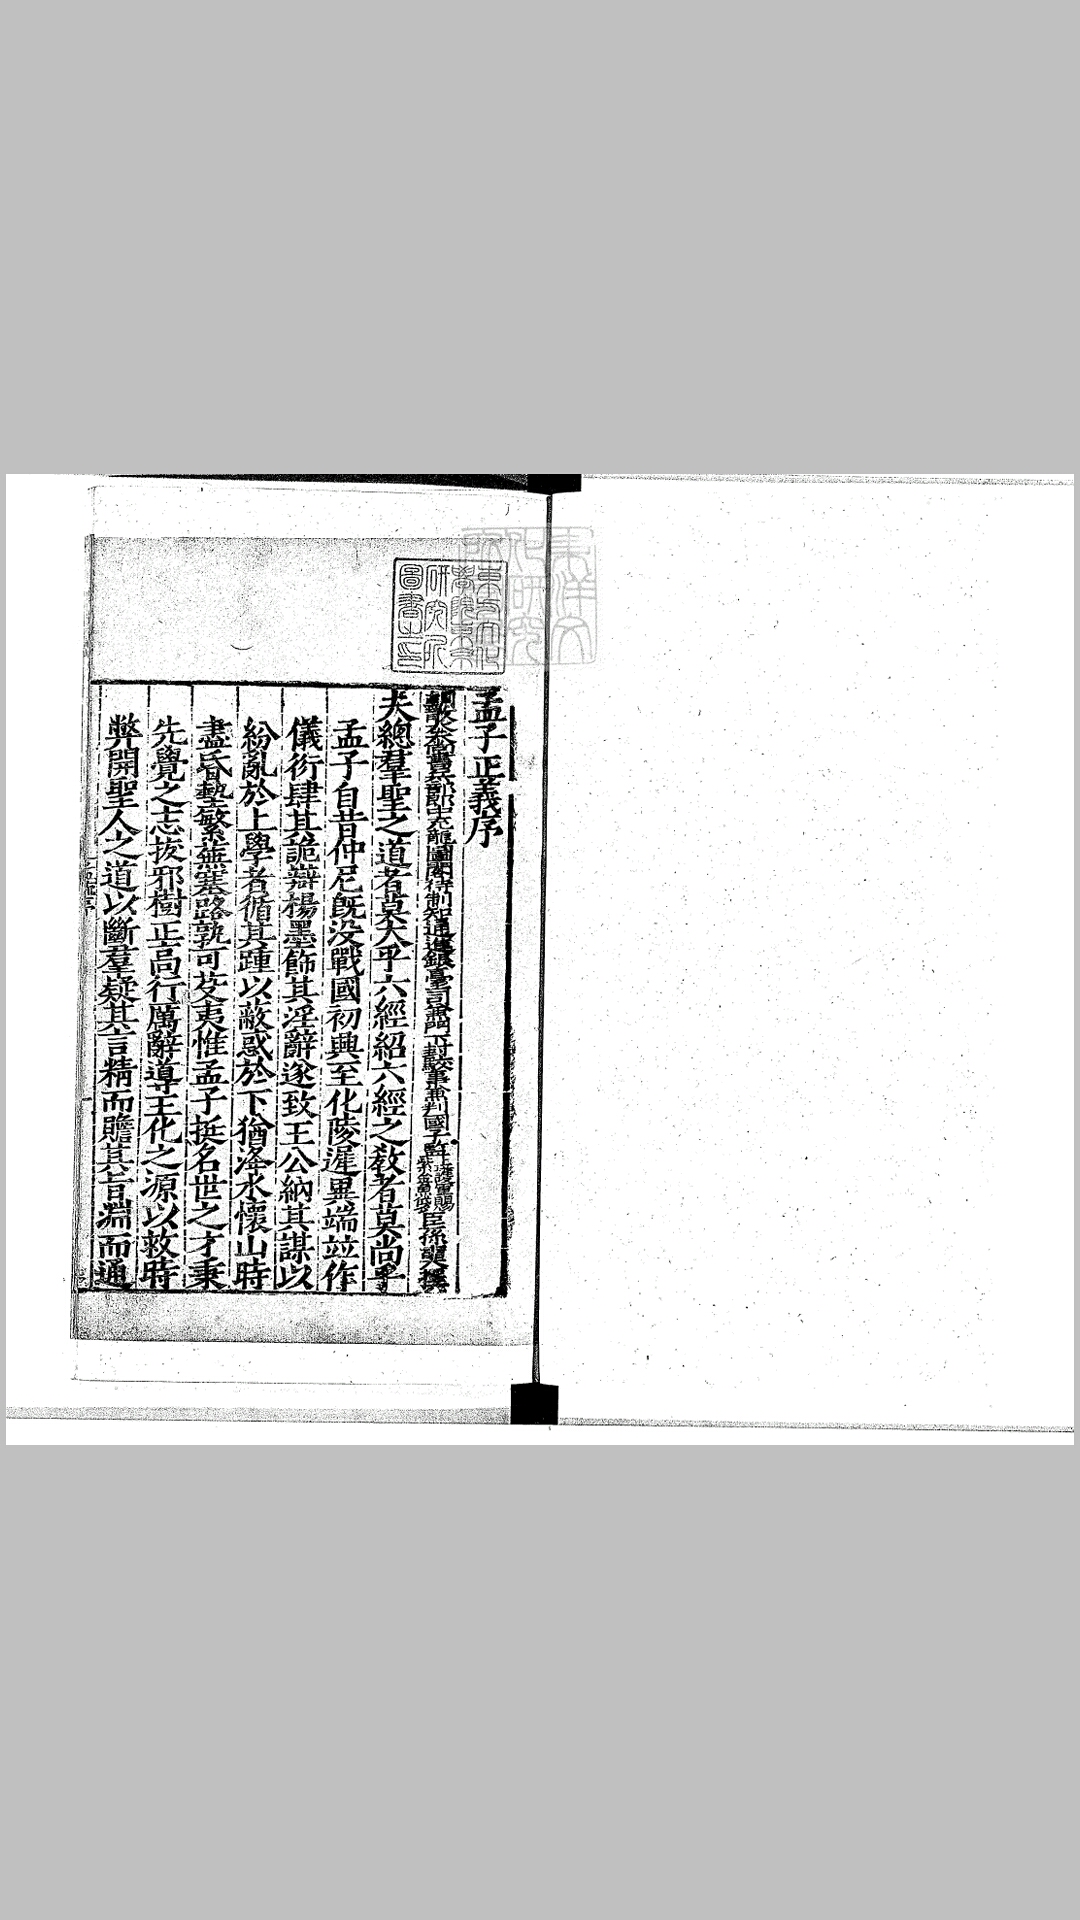 孟子正義序
朝散大夫尚書兵部郎中充龍圖閣待制知通進銀臺司兼門下封駁事兼判國子監上護軍賜紫金魚袋臣孫奭撰
夫總羣聖之道者莫大乎六經紹六經之敎者莫尚乎
孟子自昔仲尼旣没戰國初興至化陵遲異端竝作
儀衍肆其詭辯楊墨飾其淫辭遂致王公納其謀以
紛亂於上學者循其踵以蔽惑於下猶洚水懷山時
盡昏墊繁蕪塞路孰可芟夷惟孟子挺名世之才秉
先覺之志拔邪樹正高行厲辭導王化之源以救時
弊開聖人之道以斷羣疑其言精而贍其旨淵而通
東方文化
學院京都
研究所
圖書之印